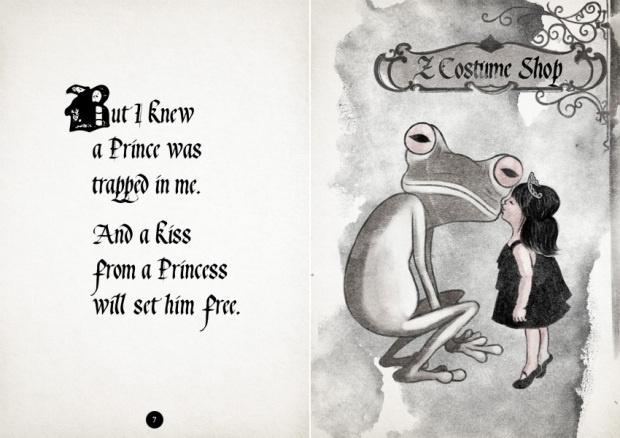 But I knew
a Prince was
trapped in me.
And a kiss
from a Princess
will set him free.
7
Z Costume Shop